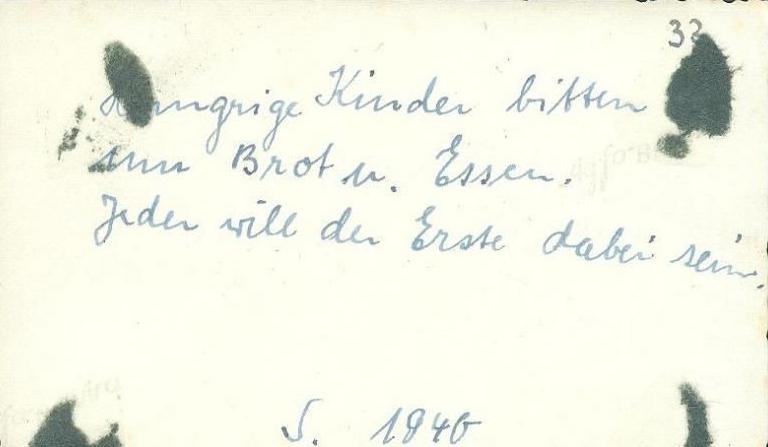 33
Hungrige Kinder bitten
um Brot u. Essen.
Jeder will der Erste dabei sein.
S. 1940